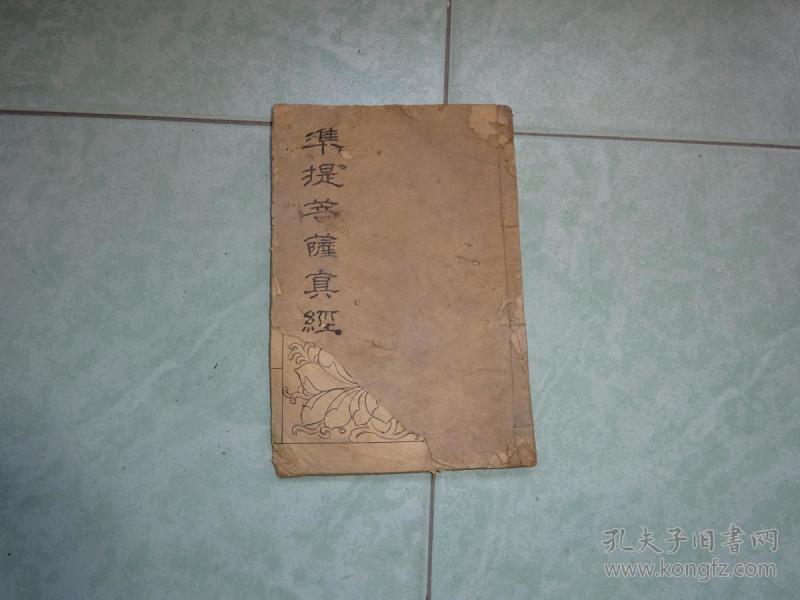 準提菩薩真經
孔夫子旧書网
www.kongfz.com